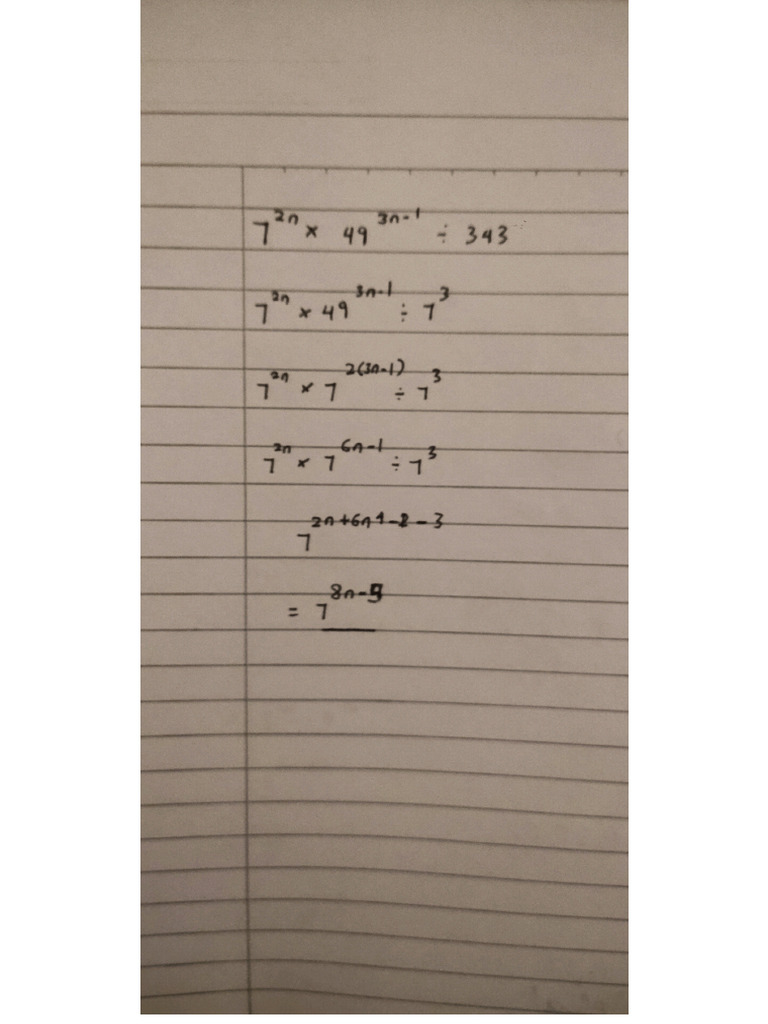 7^2n × 49^3n-1 ÷ 343
7^2n × 49^3n-1 ÷ 7^3
7^2n × 7^2(3n-1) ÷ 7^3
7^2n × 7^6n-1 ÷ 7^3
7^2n+6n-2-3
= 7^8n-5